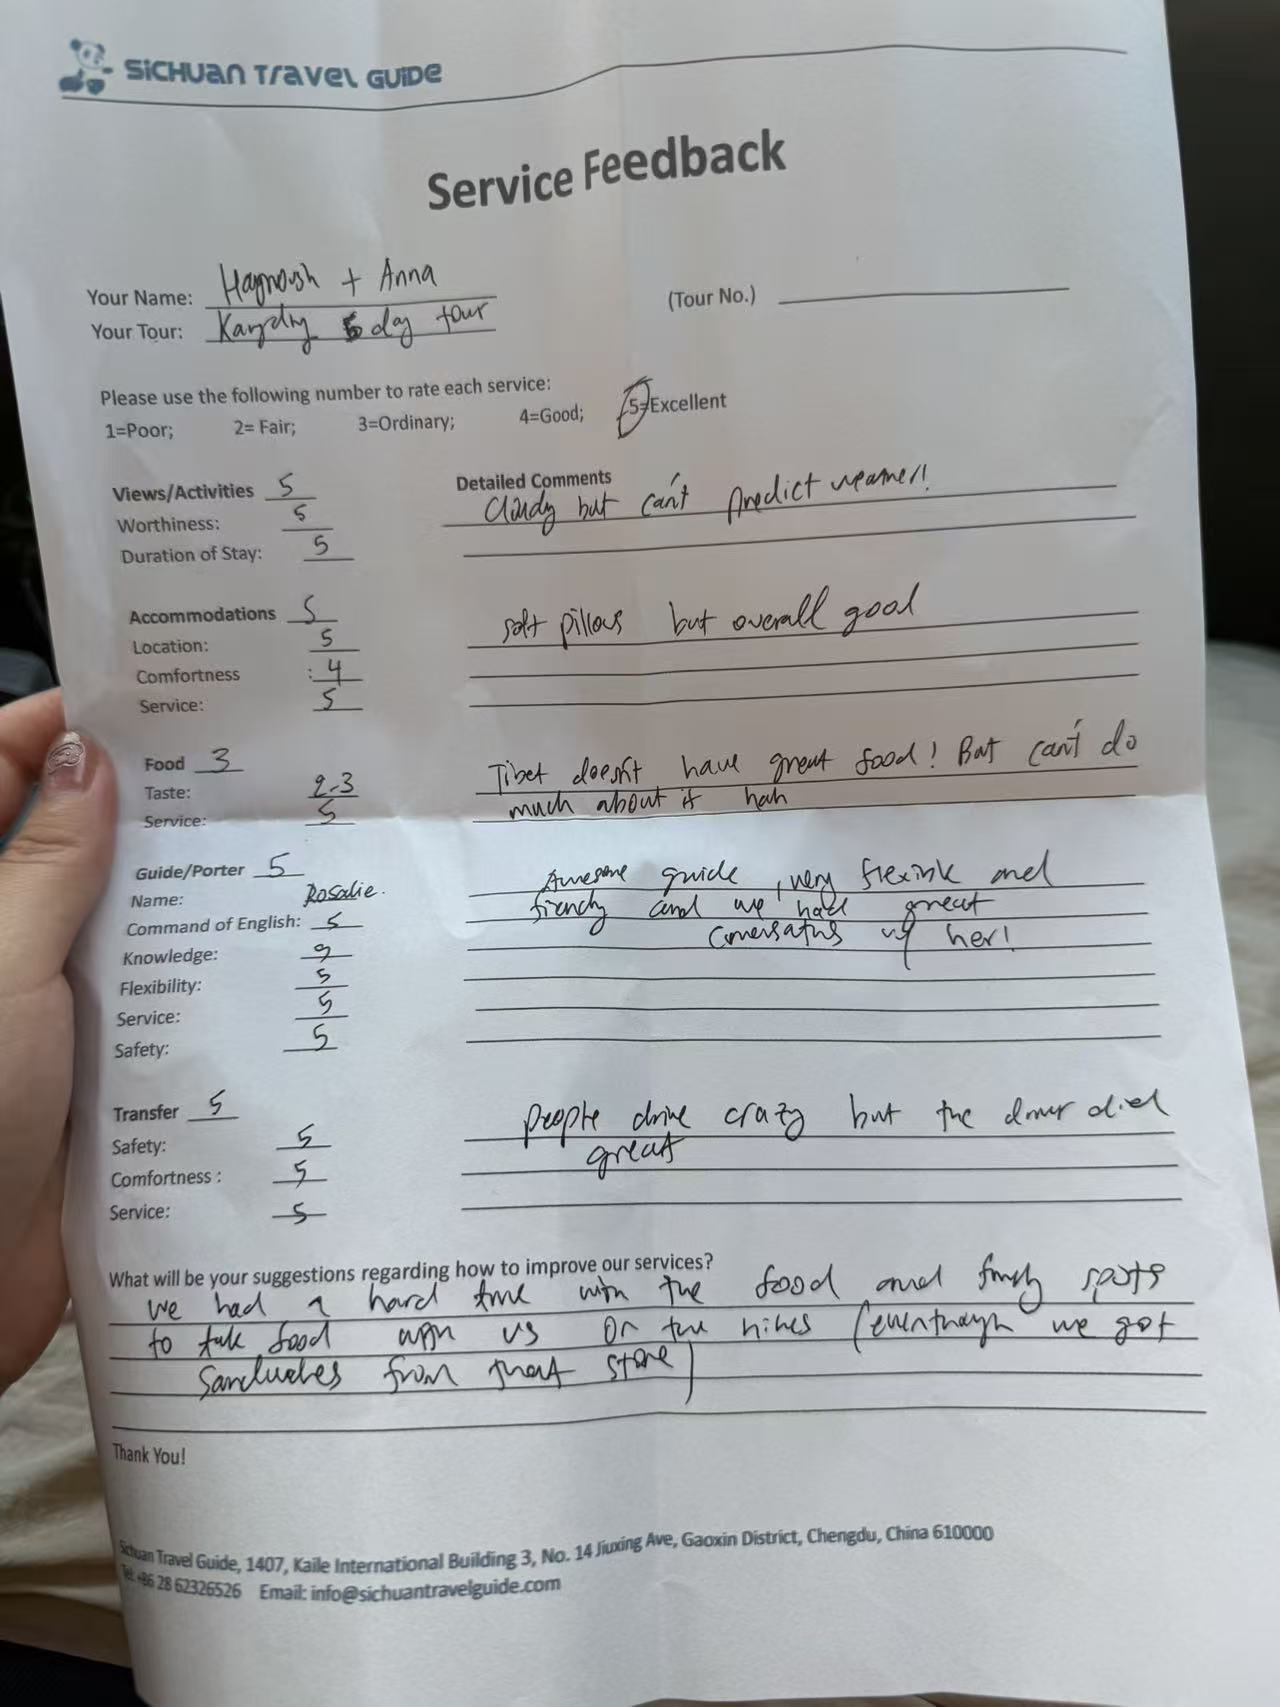 SICHUAN TRAVEL GUIDE
Service Feedback
Your Name: + Anna
(Tour No.)
Your Tour: day tour
Please use the following number to rate each service:
1=Poor; 2= Fair; 3=Ordinary; 4=Good; 5=Excellent
Views/Activities 5
Detailed Comments
Worthiness: 5
Cloudy but can't predict weather!
Duration of Stay: 5
Accommodations 5
soft pillows but overall good
Location: 5
Comfortness : 4
Service: 5
Food 3
Tibet doesn't have great food! But can't do
Taste: 2-3
much about it hah
Service: 5
Guide/Porter 5
Awesome guide, very flexible and
Name: Rosalie.
friendly and we had great
Command of English: 5
conversations w/ her!
Knowledge:
Flexibility: 5
Service: 5
Safety: 5
Transfer 5
People drive crazy but the driver died
Safety: 5
great
Comfortness : 5
Service: 5
What will be your suggestions regarding how to improve our services?
we had a hard time with the food and spots
to take food with us on the hikes (eventhough we got
sandwiches from that store)
Thank You!
Sichuan Travel Guide, 1407, Kaile International Building 3, No. 14 Jiuxing Ave, Gaoxin District, Chengdu, China 610000
Tel: +86 28 62326526 Email: info@sichuantravelguide.com